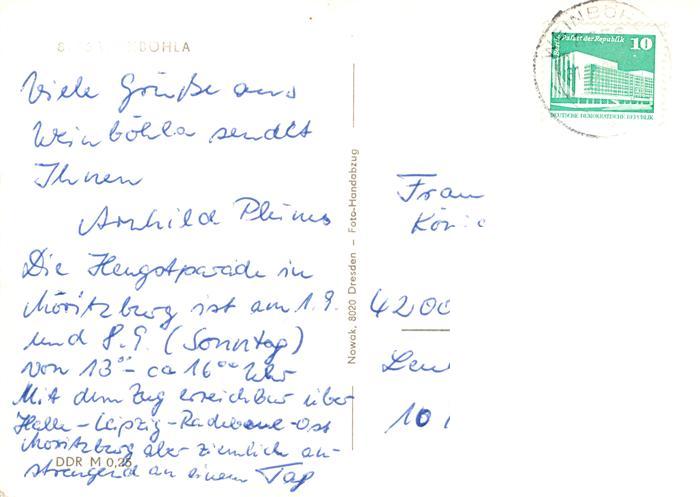 WEINBÖHLA
Viele Grüße aus
Weinböhla sendet
Ihnen
Die Hengstparade in
Moritzburg ist am 1.9.
und 8.9. (Sonntag)
von 13⁰⁰ - ca 16⁰⁰ Uhr
Mit dem Zug erreichbar über
Halle - Leipzig - Radebeul-Ost
Moritzburg aber ziemlich an-
strengend an einem Tag
DDR M 0,25
Nowak, 8020 Dresden – Foto-Handabzug
WEINBÖH
Berlin, Palast der Republik
10
DEUTSCHE DEMOKRATISCHE REPUBLIK
Frau
Kön
4200
Leu
10